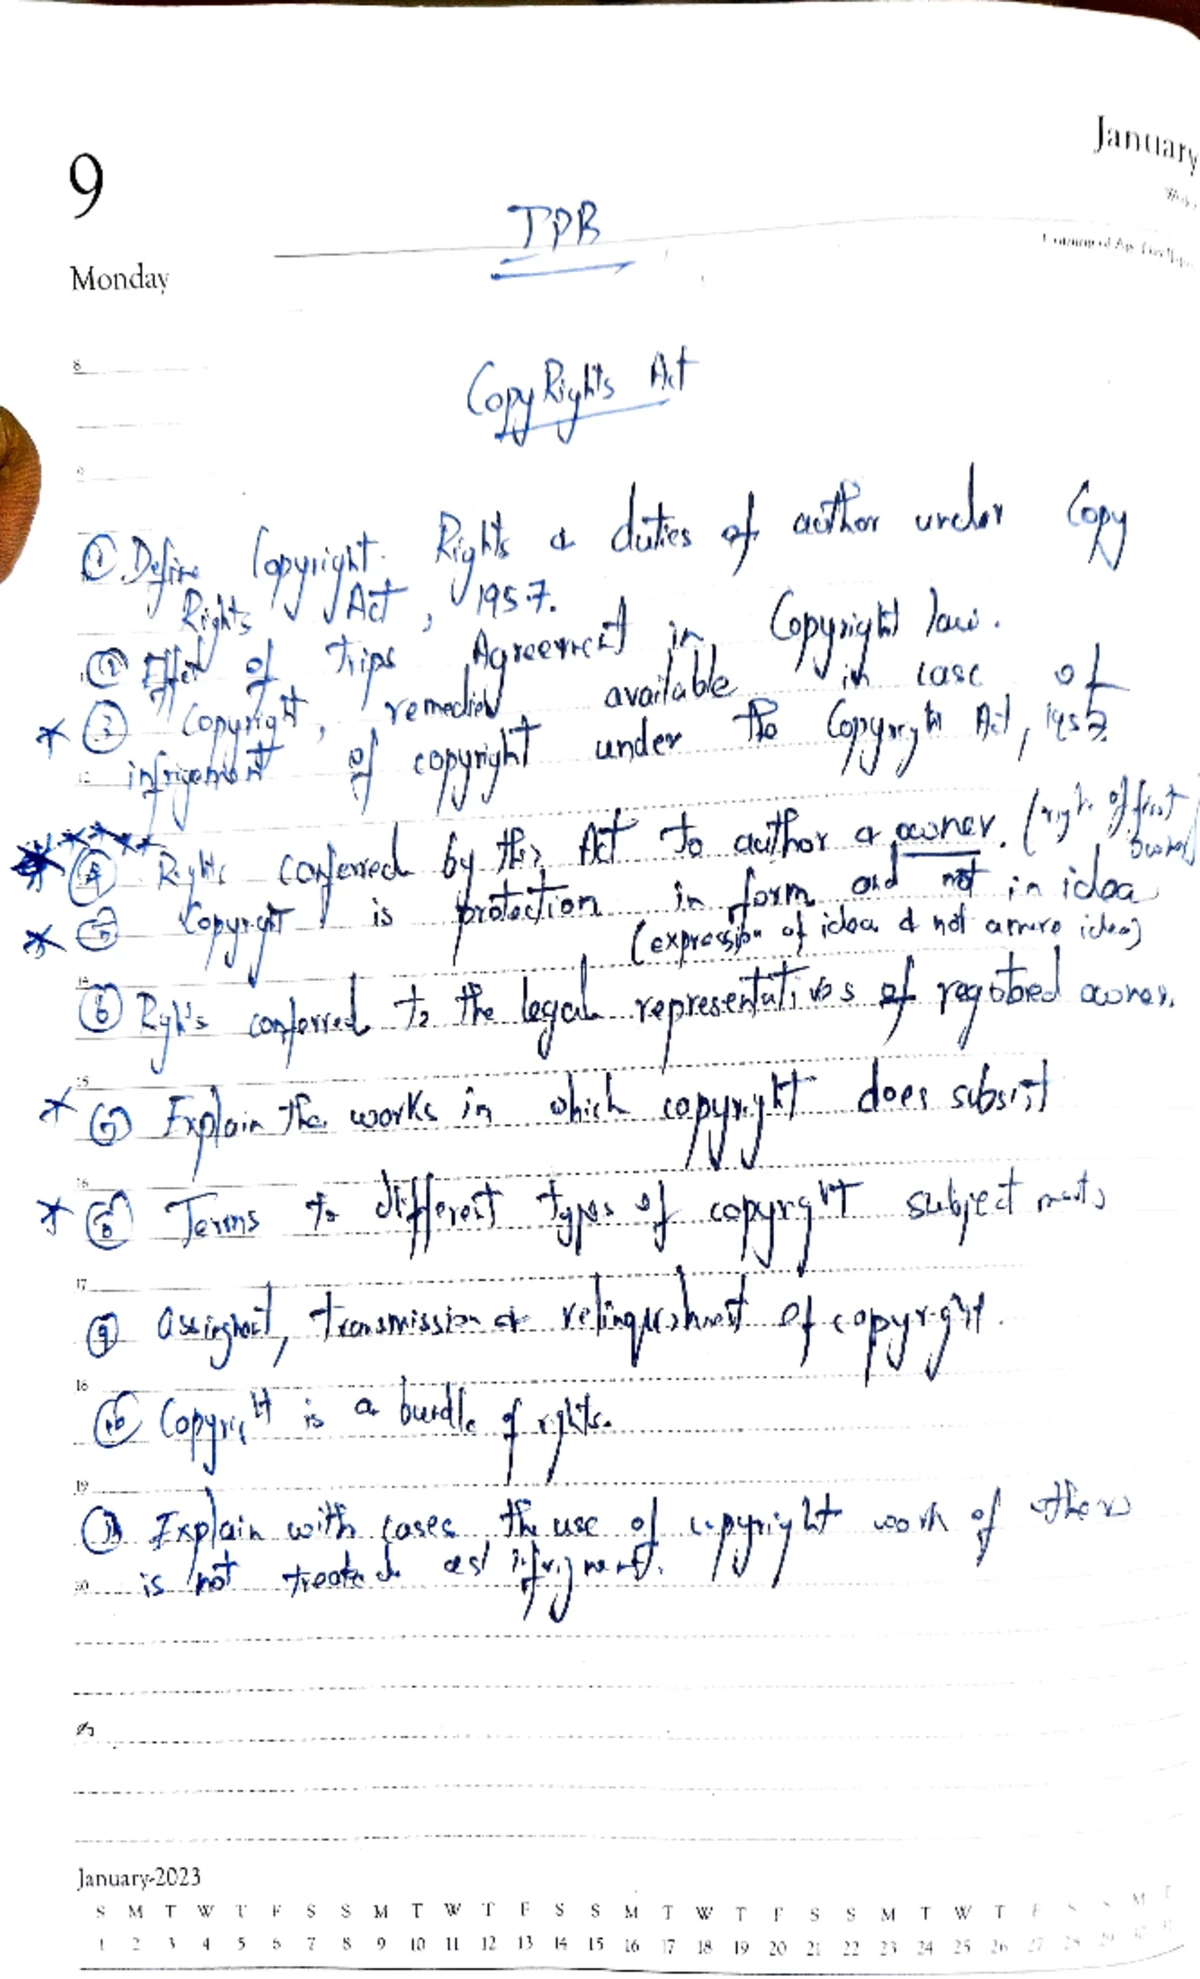 9
January
Monday
IPR
CopyRights Act
8
9
① Define Copyright. Rights & duties of author under Copy
Rights Act, 1957.
② Effect of trips Agreement in Copyright law.
* ③ Copyright, remedies available in case of
infrigement of copyright under the Copyright Act, 1957.
12
* ④ Rights conferred by this Act to author & owner. (right of first owner)
* ⑤ Copyright is protection in form and not in idea
(expression of idea & not a mere idea)
14
⑥ Rights conferred to the legal representatives of registered owner.
15
* ⑦ Explain the works in which copyright does subsist
16
* ⑧ Terms to different types of copyright subject
17
⑨ Assingment, transmission & relinquishment of copyright.
18
⑩ Copyright is a bundle of rights.
19
⑪ Explain with cases the use of copyright work of others
20 is not treated as infrigment.
January-2023
S M T W T F S S M T W T F S S M T W T F S S M T W T F S S M T
1 2 3 4 5 6 7 8 9 10 11 12 13 14 15 16 17 18 19 20 21 22 23 24 25 26 27 28 29 30 31